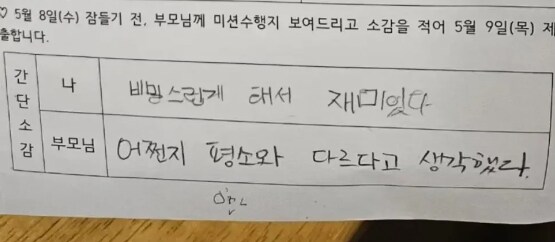 ♡ 5월 8일(수) 잠들기 전, 부모님께 미션수행지 보여드리고 소감을 적어 5월 9일(목) 제
출합니다.
간단소감
나
비밀스럽게 해서 재미있다
부모님
어쩐지 평소와 다르다고 생각했다.